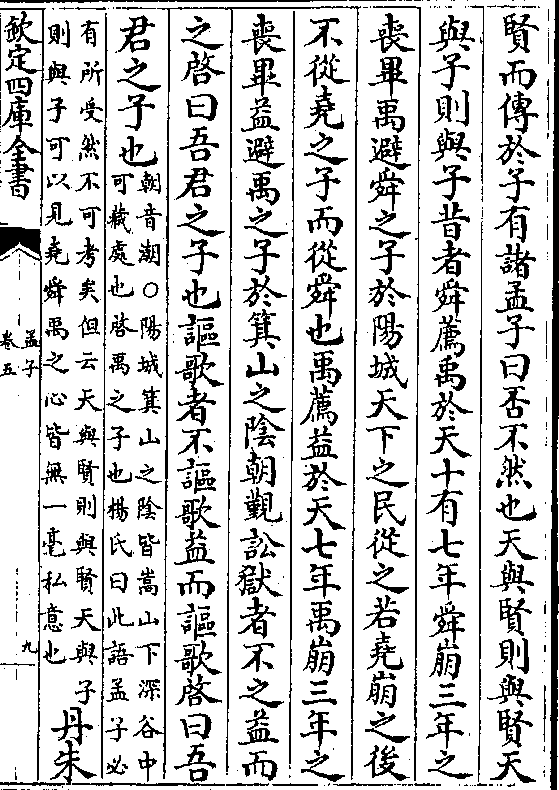 賢而傳於子有諸孟子曰否不然也天與賢則與賢天
與子則與子昔者舜薦禹於天十有七年舜崩三年之
喪畢禹避舜之子於陽城天下之民從之若堯崩之後
不從堯之子而從舜也禹薦益於天七年禹崩三年之
喪畢益避禹之子於箕山之陰朝覲訟獄者不之益而
之啓曰吾君之子也謳歌者不謳歌益而謳歌啓曰吾
君之子也
朝音潮○陽城箕山之陰皆嵩山下深谷中
可藏處也啓禹之子也楊氏曰此語孟子必
有所受然不可考矣但云天與賢則與賢天與子
則與子可以見堯舜禹之心皆無一毫私意也
丹朱
欽定四庫全書
孟子
卷五
九